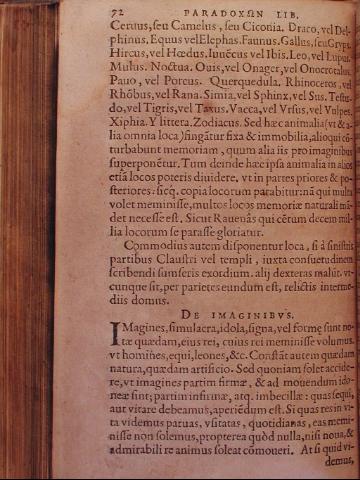 72 PARADOXΩN LIB.
Ceruus, seu Camelus, seu Ciconia. Draco, vel Del-
phinus. Equus vel Elephas. Faunus. Gallus, seu Gryps
Hircus, vel Hœdus. Iuuēcus vel Ibis. Leo, vel Lupus
Mulus. Noctua. Ouis, vel Onager, vel Onocrotalus
Pauo, vel Porcus. Querquedula. Rhinoceros, vel
Rhôbus, vel Rana. Simia, vel Sphinx, vel Sus. Testu-
do, vel Tigris, vel Taxus. Vacca, vel Vrsus, vel Vulpes.
Xiphia. Y littera. Zodiacus. Sed hæc animalia (vt & a-
lia omnia loca) fingātur fixa & immobilia, alioqui cō-
turbabunt memoriam, quum alia iis pro imaginibus
superponētur. Tum deinde hæc ipsa animalia in alios
etiā locos poteris diuidere, vt in partes priores & po-
steriores: sicq. copia locorum parabitur: nā qui multa
volet meminisse, multos locos memoriæ naturali mā-
det necesse est. Sicut Rauenās qui cētum decem mil-
lia locorum se parasse gloriatur.
Commodius autem disponentur loca, si à sinistris
partibus Claustri vel templi, iuxta consuetudinem
scribendi sumseris exordium. alij dexteras malūt. vt-
cunque sit, per parietes eundum est, relictis interme-
diis domus.
DE IMAGINIBVS.
IMagines, simulacra, idola, signa, vel formę sunt no-
tæ quædam, eius rei, cuius rei meminisse volumus.
vt homines, equi, leones, &c. Constāt autem quædam
natura, quædam artificio. Sed quoniam solet accide-
re, vt imagines partim firmæ, & ad mouendum ido-
neæ sint; partim infirmæ, atq. imbecillæ: quas sequi,
aut vitare debeamus, aperiēdum est. Si quas res in vi-
ta videmus paruas, vsitatas, quotidianas, eas memi-
nisse non solemus, propterea quòd nulla, nisi noua, &
admirabili re animus soleat cōmoueri. At si quid vi-
demus,